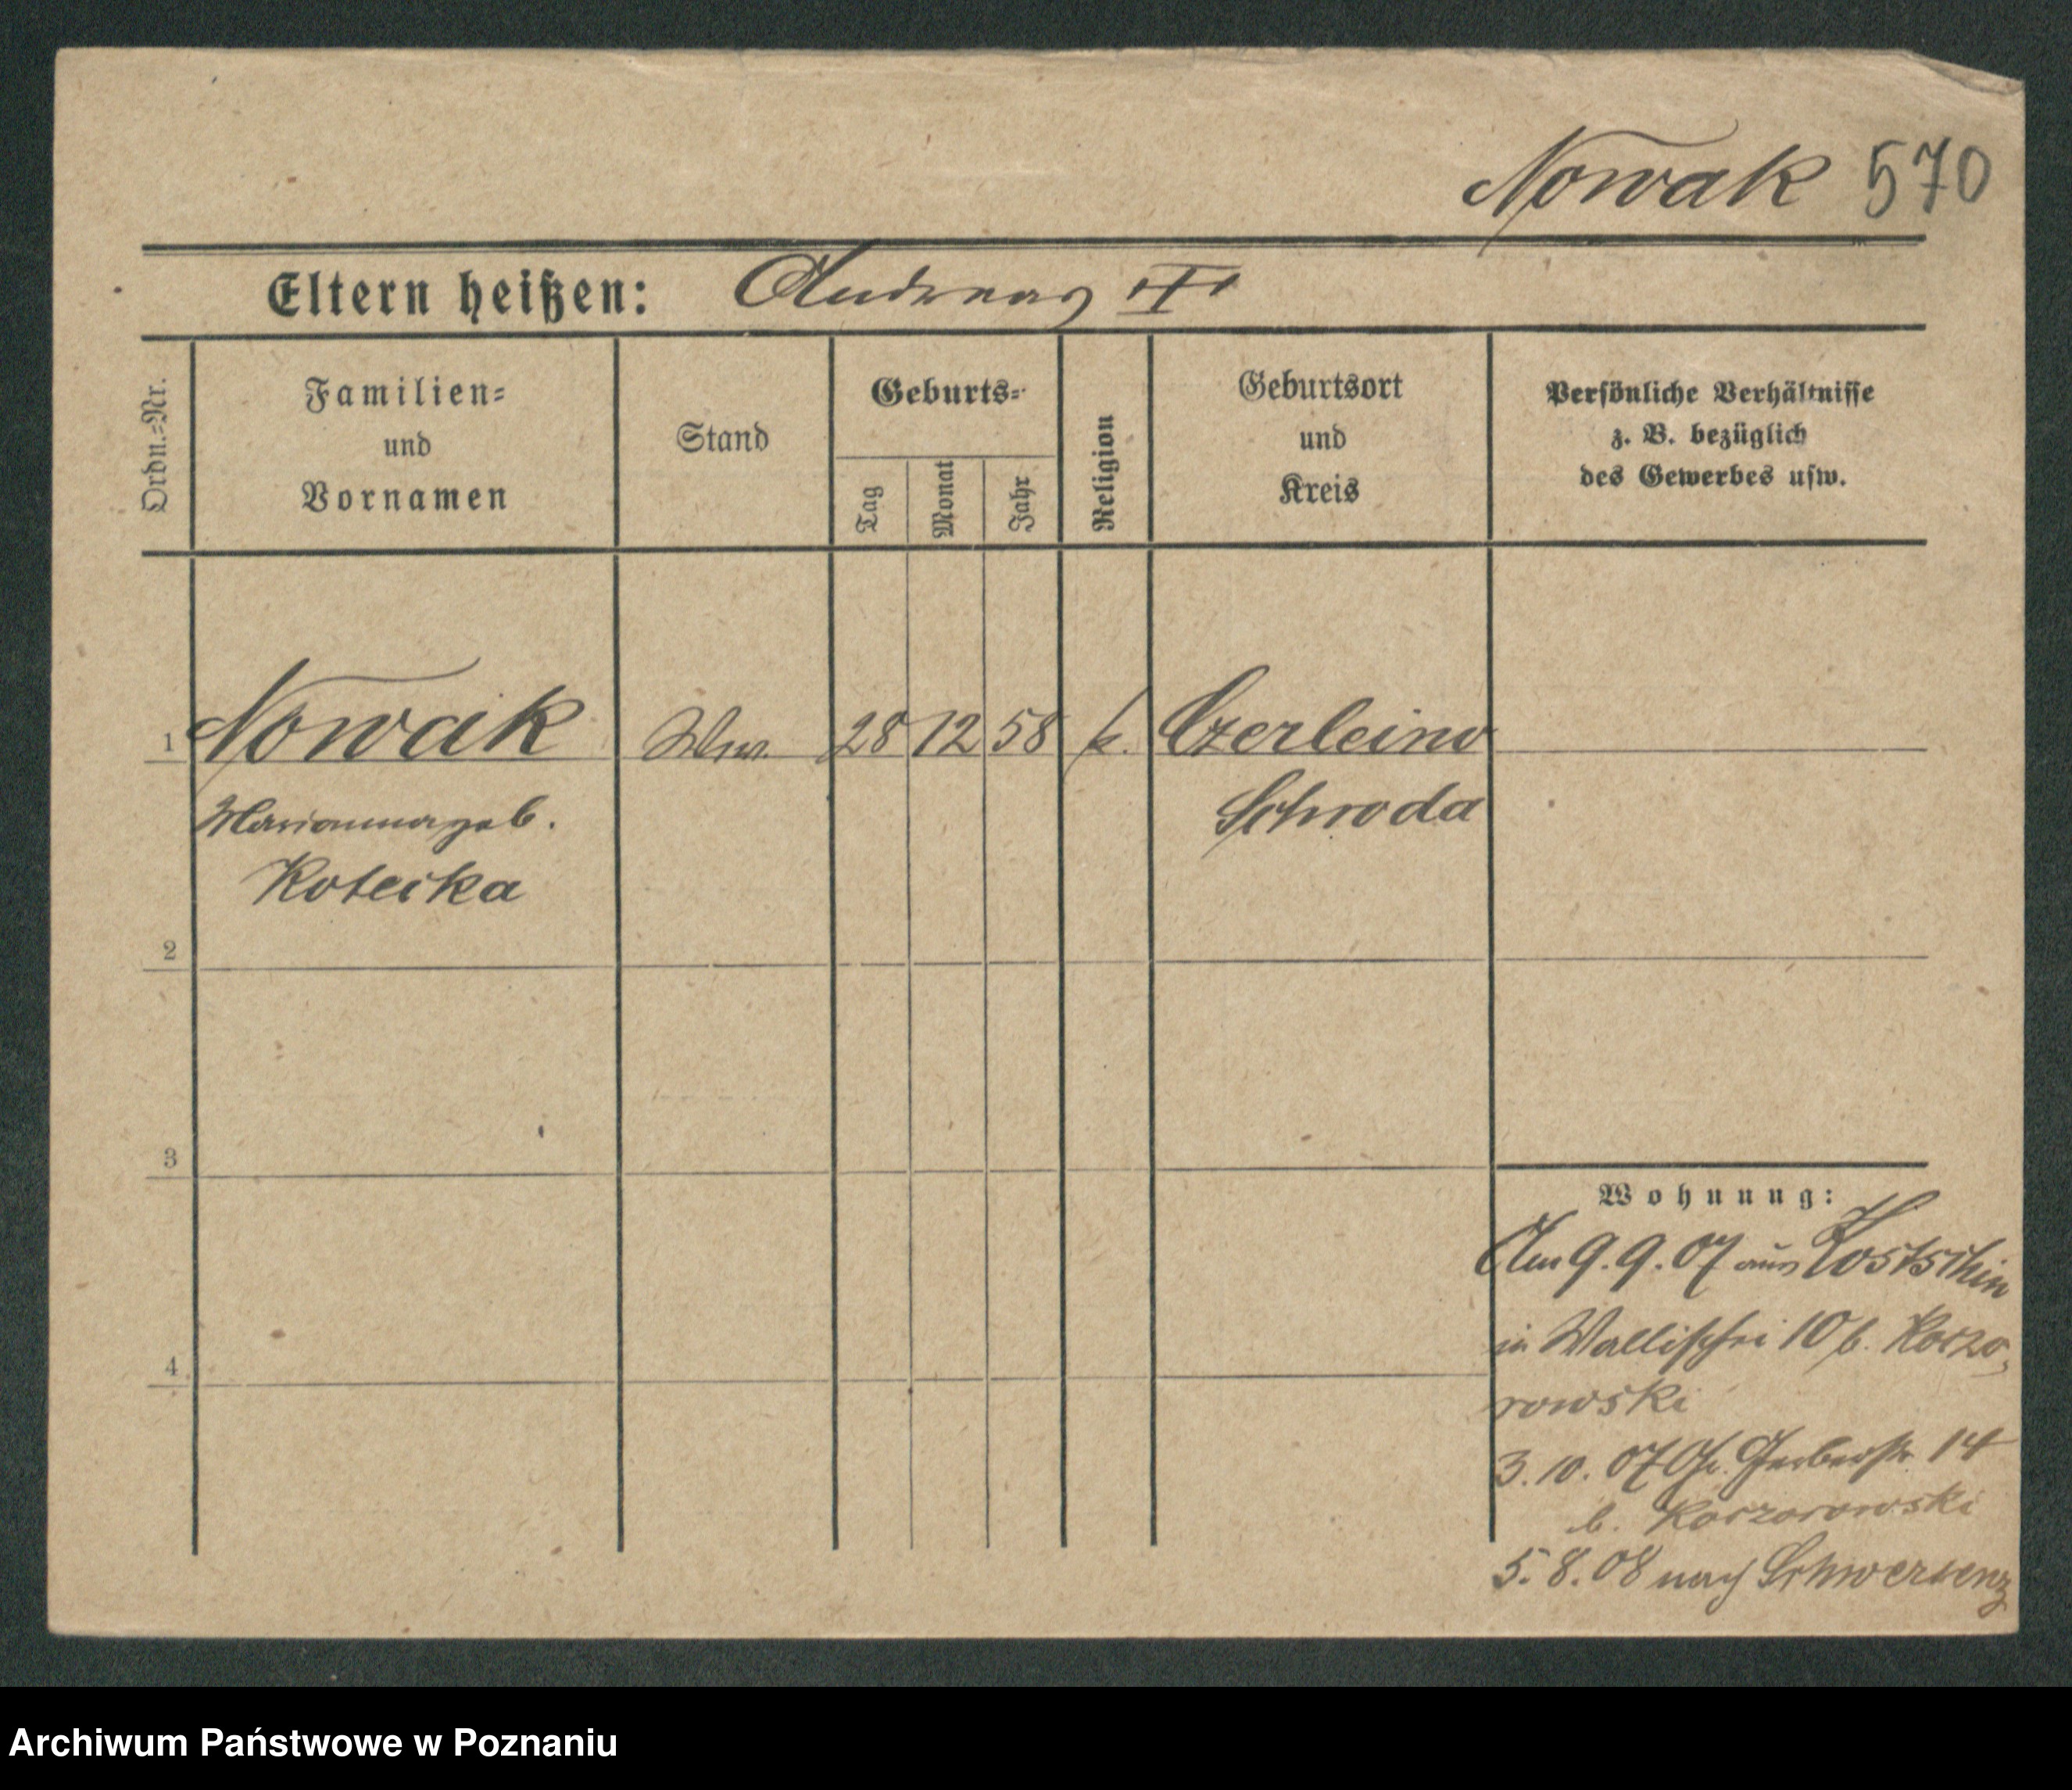 Nowak 570
Eltern heißen: Andreas ///
Ordn.=Nr.
Familien=
und
Vornamen
Stand
Geburts=
Tag
Monat
Jahr
Religion
Geburtsort
und
Kreis
Persönliche Verhältnisse
z. B. bezüglich
des Gewerbes usw.
1 Nowak Ww. 28 12 58 k. Czerleino
Marianna geb. Schroda
Koteika
2
3
4
Wohnung:
Am 9.9.07 aus Kostschin
in Wallischei 10 b. Koczo-
rowski
3.10.07 Gr. Gerberstr. 14
b. Koczorowski
5.8.08 nach Schwersenz
Archiwum Państwowe w Poznaniu